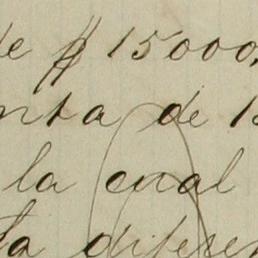 de $ 15000.
nta de 1
la cual
ta diferen